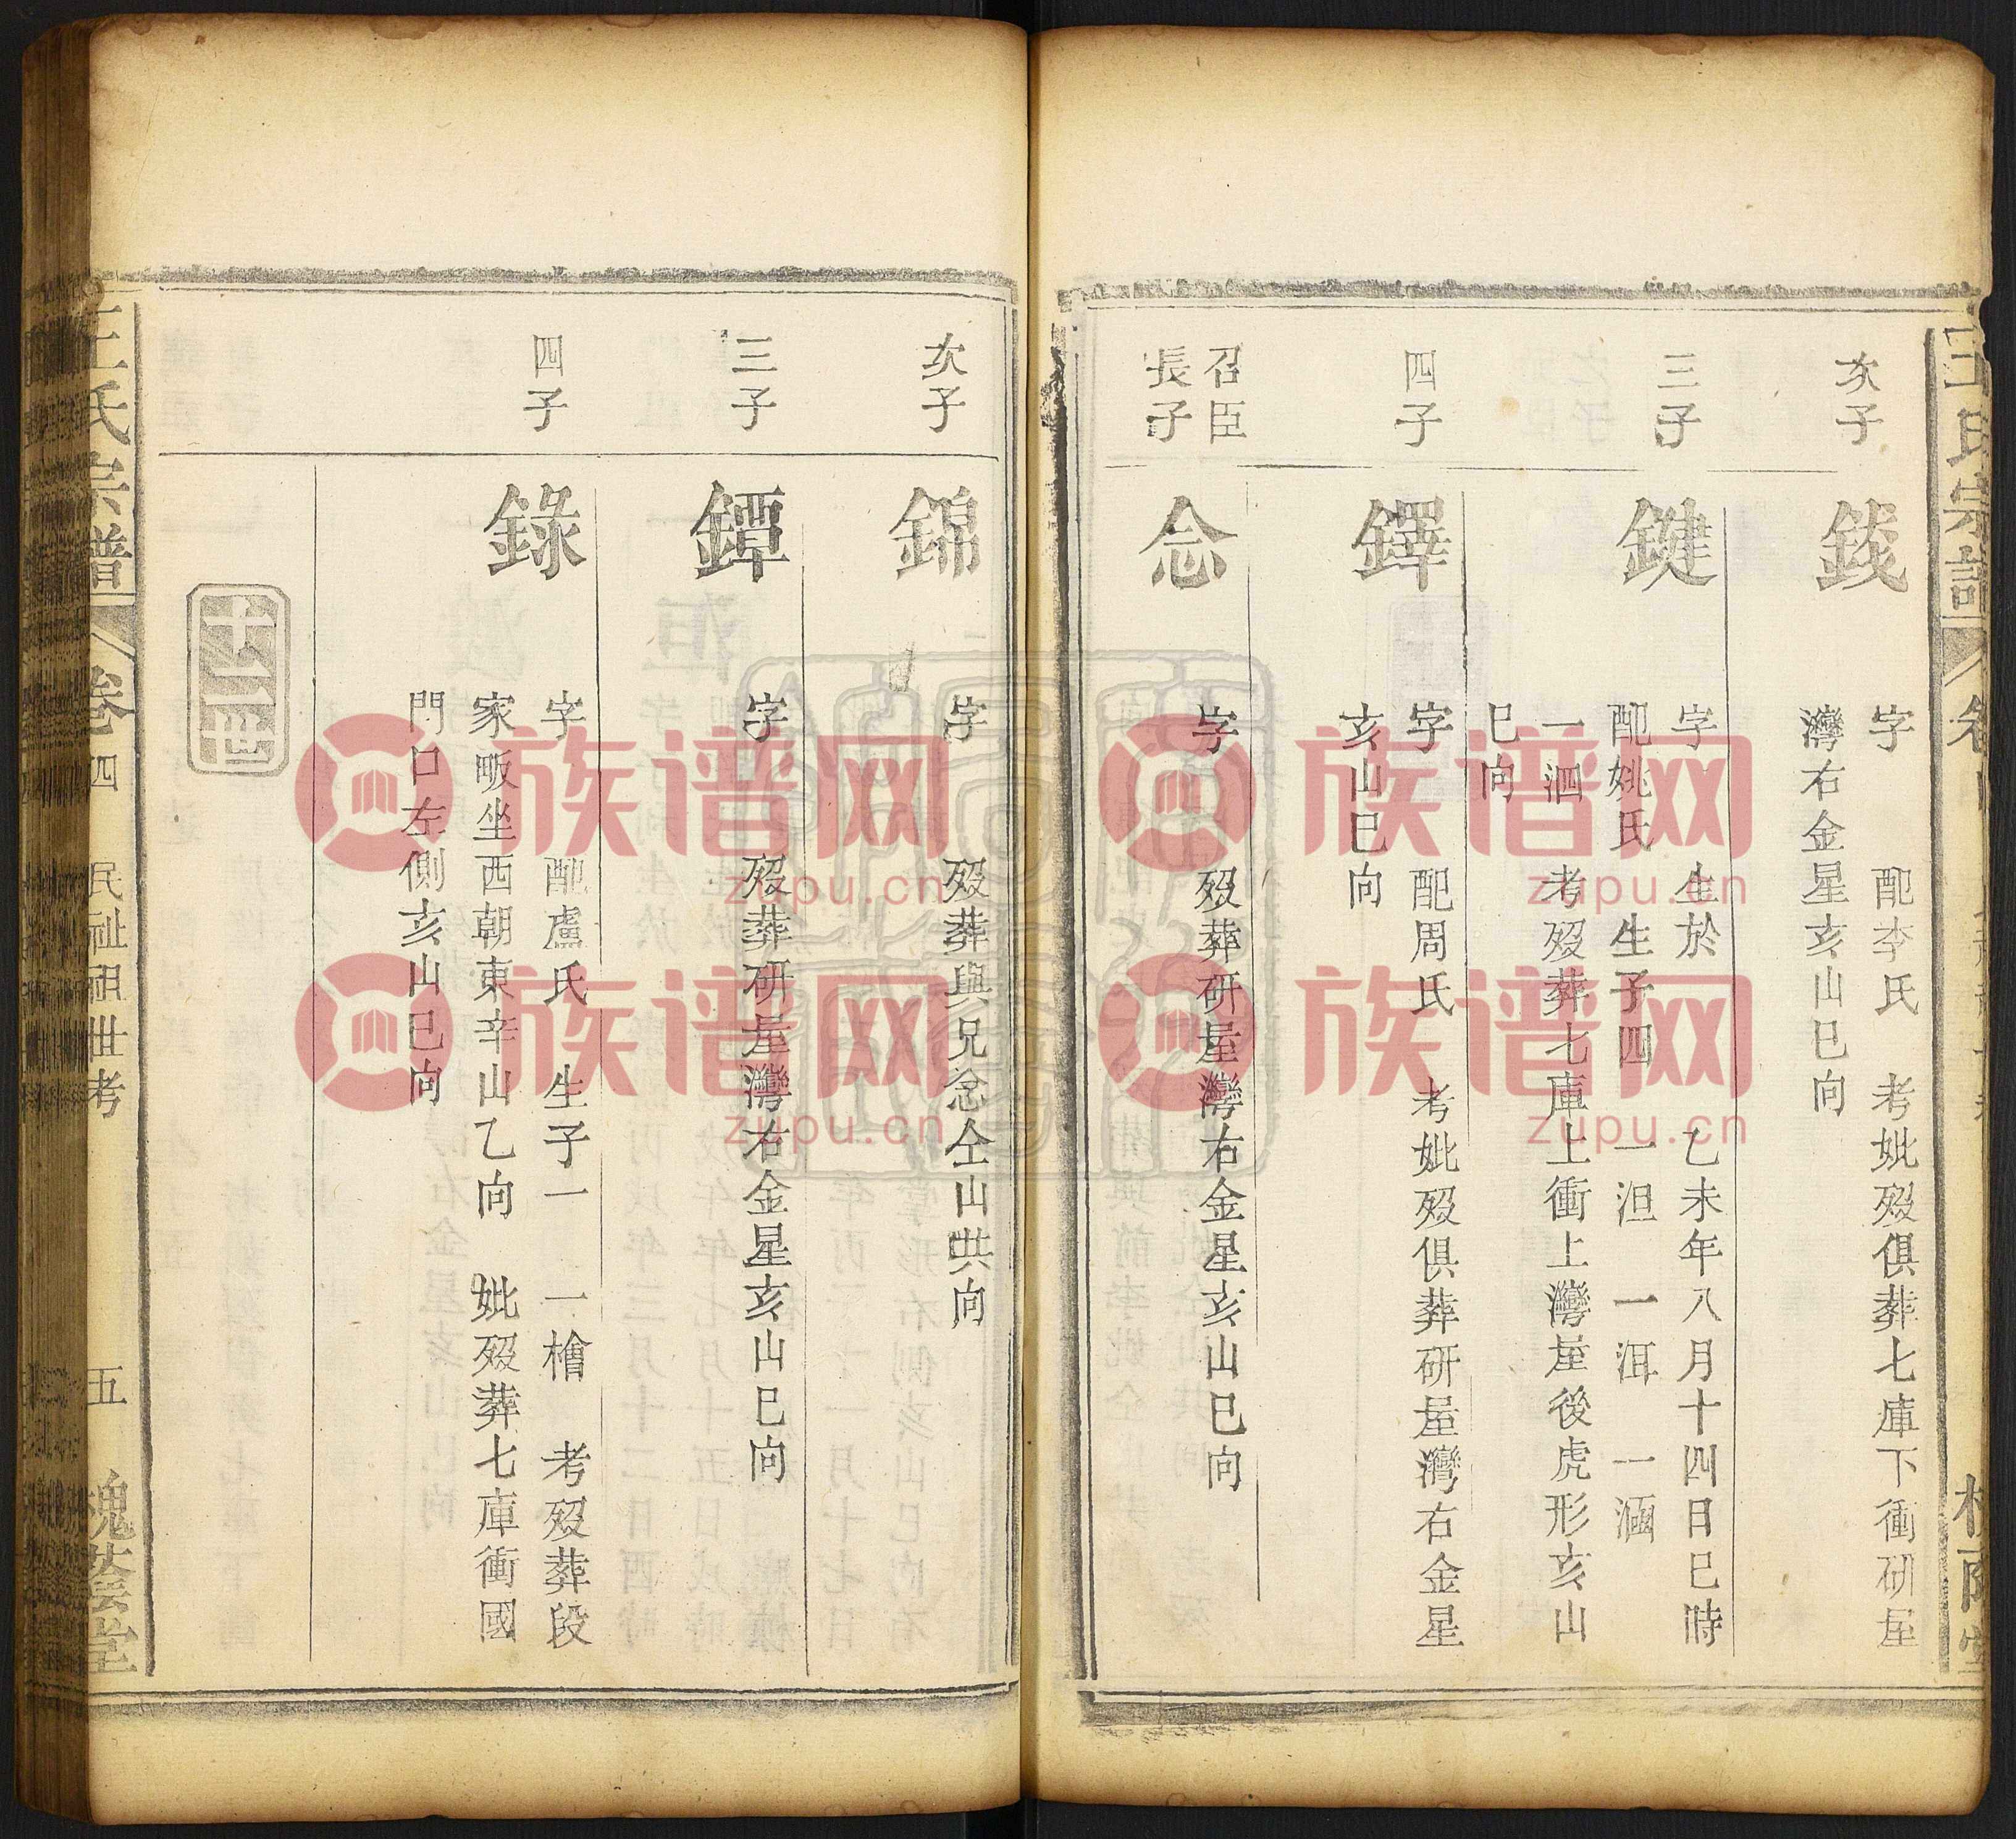 次子
錟
字　配李氏　考妣歿俱葬七庫下衝硏屋
灣右金星亥山巳向
三子
鍵
字　生於　乙未年八月十四日巳時
配姚氏　生子四　一泹　一洱　一涵
一泗　考歿葬七庫上衝上灣屋後虎形亥山
巳向
四子
鐸
字　配周氏　考妣歿俱葬硏屋灣右金星
亥山巳向
召臣
長子
念
字　歿葬硏屋灣右金星亥山巳向
次子
錦
字　歿葬與兄念仝山共向
三子
鐔
字　歿葬硏屋灣右金星亥山巳向
四子
錄
字　配盧氏　生子一　一檜　考歿葬段
家畈坐西朝東辛山乙向　妣歿葬七庫衝國
門口左側亥山巳向
王氏宗譜　卷四　民祉祖世考　五　槐蔭堂
族谱网
zupu.cn
族谱网
zupu.cn
族谱网
zupu.cn
族谱网
zupu.cn